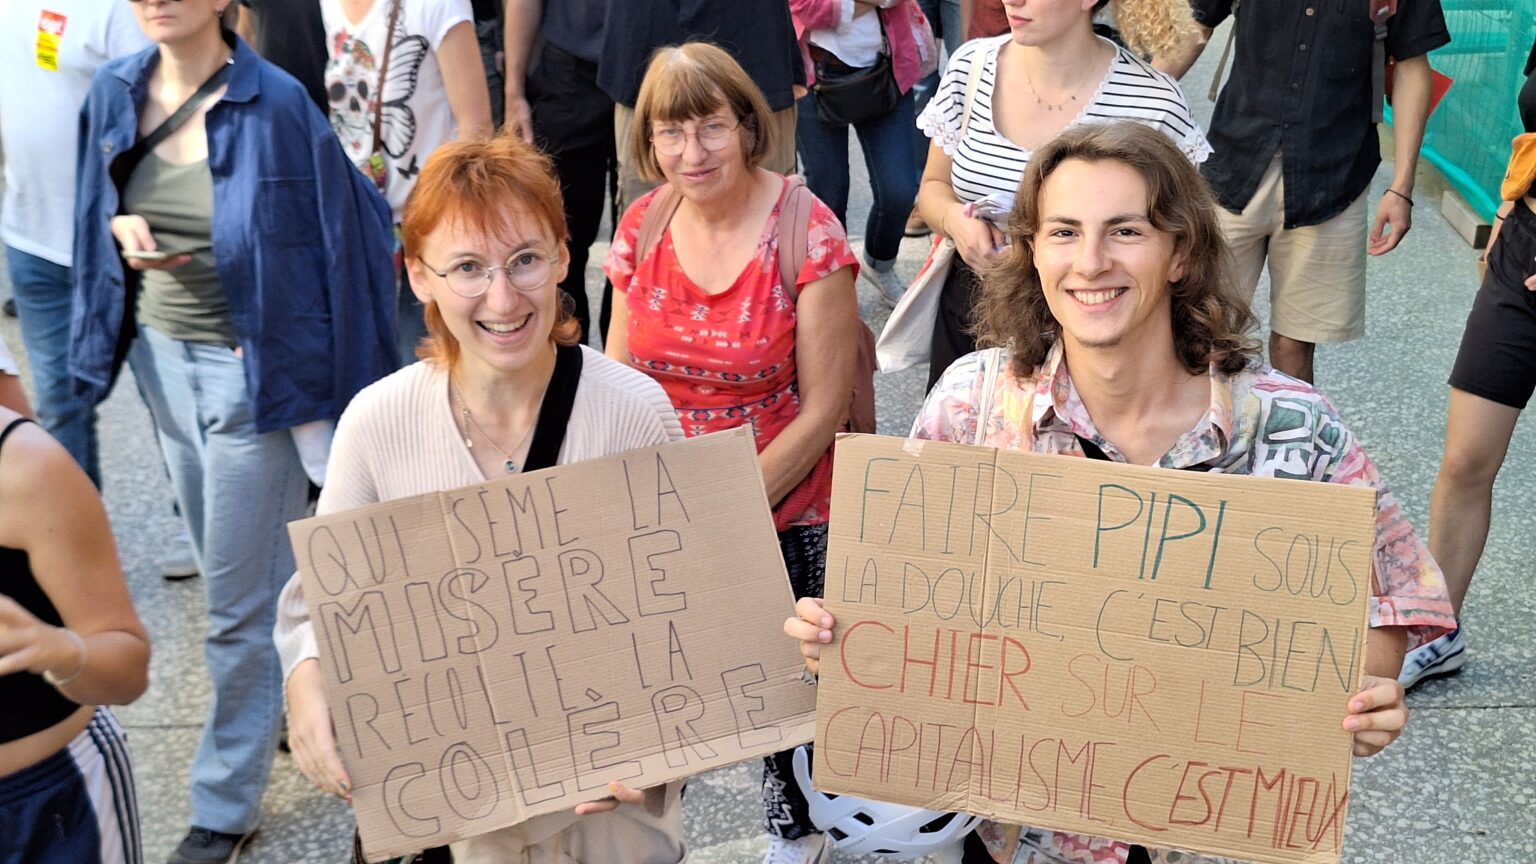 QUI SÈME LA
MISÈRE
RÉCOLTE LA
COLÈRE
FAIRE PIPI SOUS
LA DOUCHE, C'EST BIEN
CHIER SUR LE
CAPITALISME, C'EST MIEUX